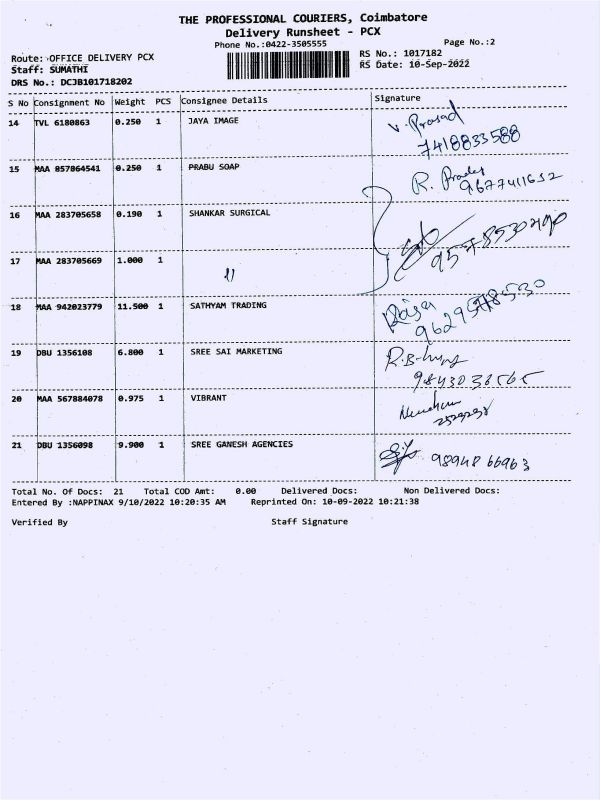 THE PROFESSIONAL COURIERS, Coimbatore
Delivery Runsheet - PCX
Phone No.:0422-3505555 Page No.:2
Route: OFFICE DELIVERY PCX RS No.: 1017182
Staff: SUMATHI RS Date: 10-Sep-2022
DRS No.: DCJB101718202
S No Consignment No Weight PCS Consignee Details Signature
14 TVL 6180863 0.250 1 JAYA IMAGE V. Prasad
7418833588
15 MAA 857064541 0.250 1 PRABU SOAP R.
9677411652
16 MAA 283705658 0.190 1 SHANKAR SURGICAL
17 MAA 283705669 1.000 1 11
18 MAA 942023779 11.500 1 SATHYAM TRADING
9629578530
19 DBU 1356108 6.800 1 SREE SAI MARKETING
20 MAA 567884078 0.975 1 VIBRANT
21 DBU 1356098 9.900 1 SREE GANESH AGENCIES 98948 66963
Total No. Of Docs: 21 Total COD Amt: 0.00 Delivered Docs: Non Delivered Docs:
Entered By :NAPPINAX 9/10/2022 10:20:35 AM Reprinted On: 10-09-2022 10:21:38
Verified By Staff Signature